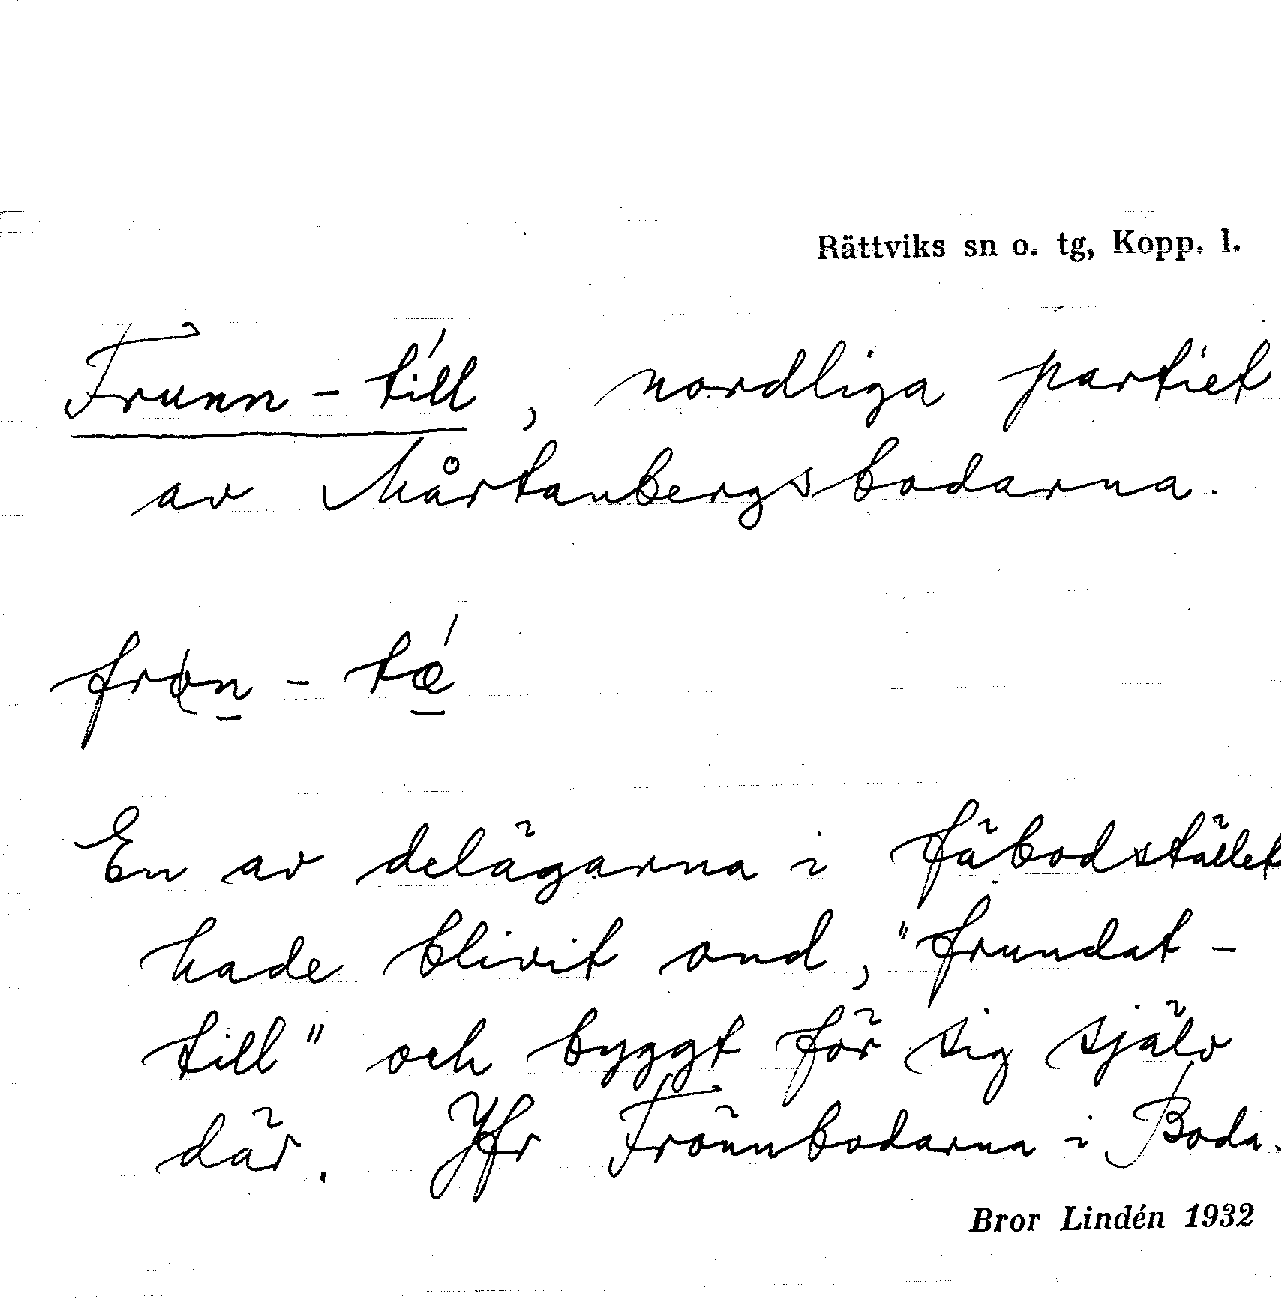 Rättviks sn o. tg, Kopp. l.
Frunn-till, nordliga partiet
av Mårtanbergsbodarna.
En av delägarna i fäbodstället
hade blivit ond, "frundat-
till" och byggt för sig själv
där. Jfr Frönnbodarna i Boda.
Bror Lindén 1932